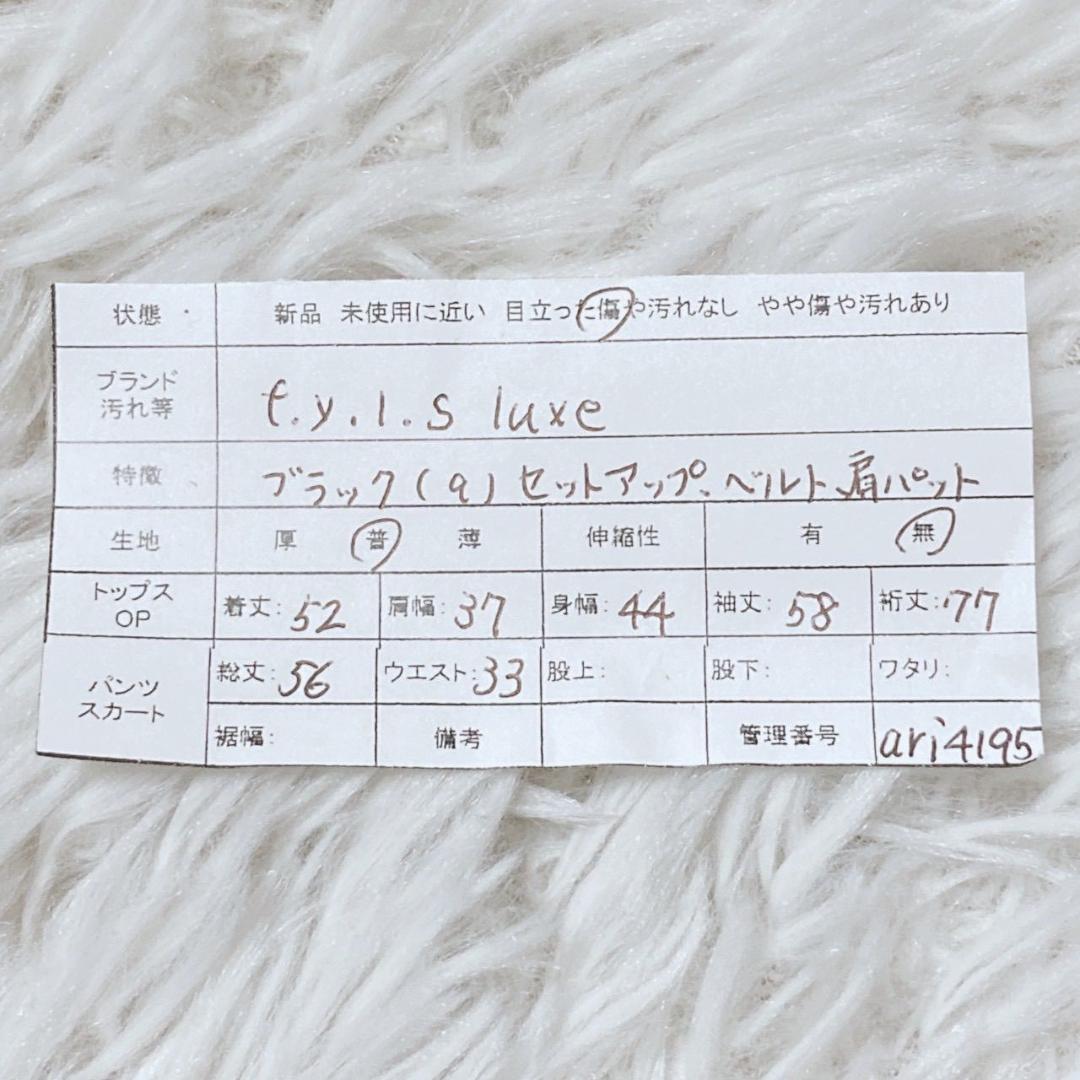 状態 新品 未使用に近い 目立った傷や汚れなし やや傷や汚れあり
ブランド
汚れ等 t.y.l.s luxe
特徴 ブラック(9)セットアップ、ベルト、肩パット
生地 厚 普 薄 伸縮性 有 無
トップス
OP 着丈:52 肩幅:37 身幅:44 袖丈:58 裄丈:77
パンツ
スカート 総丈:56 ウエスト:33 股上: 股下: ワタリ:
裾幅: 備考 管理番号 ari4195